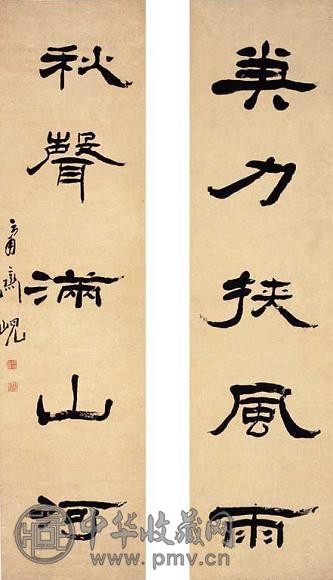 力挟風雨
秋聲滿山河
庸齋峴
中华收藏网
www.pmv.cn